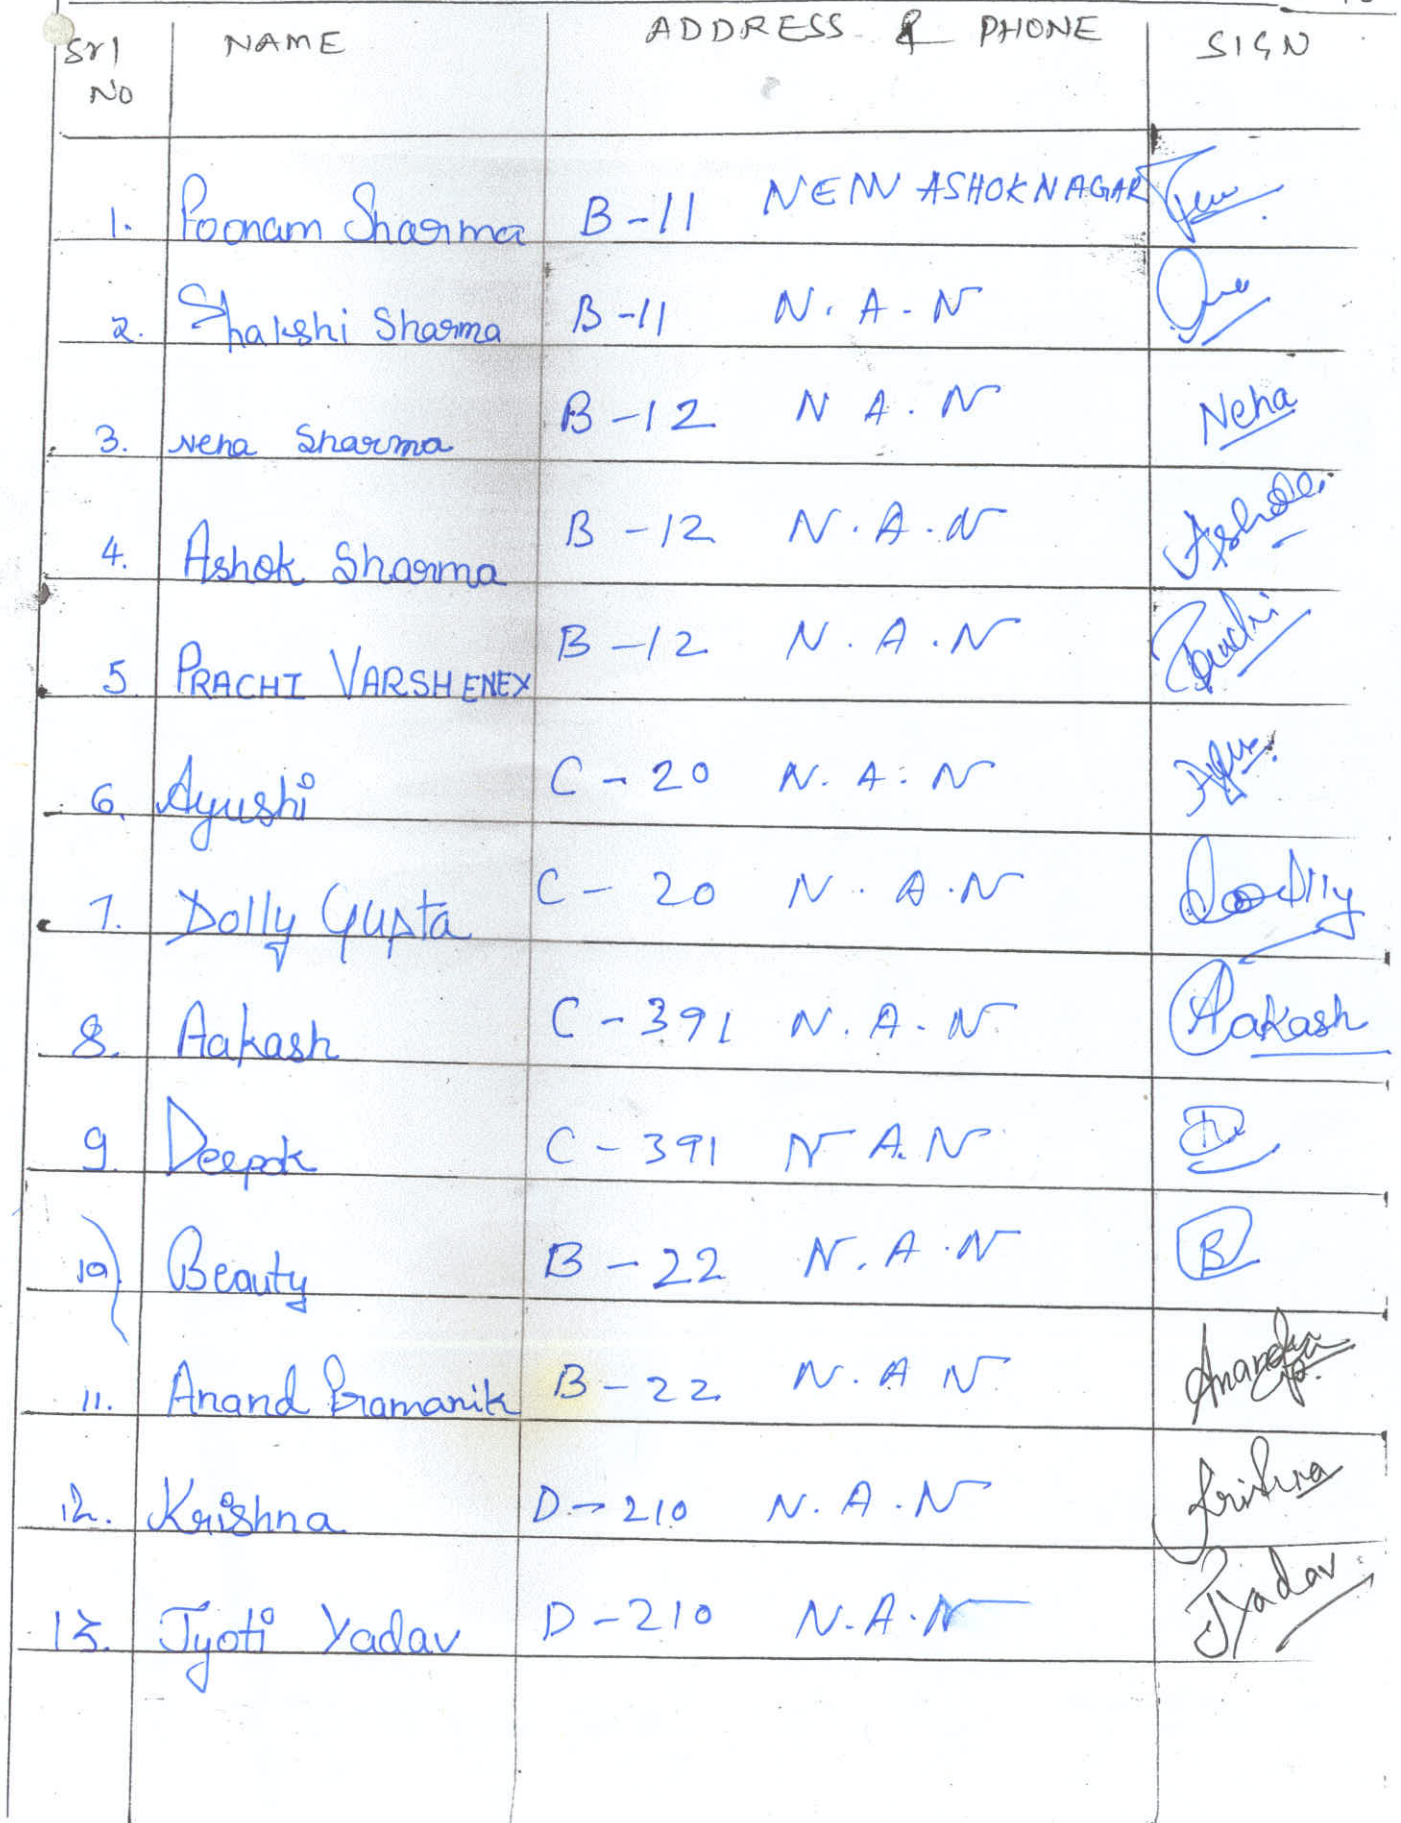 Srl No NAME ADDRESS & PHONE SIGN
1. Poonam Sharma B-11 NEW ASHOK NAGAR
2. Shakshi Sharma B-11 N.A.N
3. Neha Sharma B-12 N A.N Neha
4. Ashok Sharma B-12 N.A.N Ashok
5 PRACHI VARSHENEY B-12 N.A.N Prachi
6. Ayushi C-20 N.A.N
7. Dolly Gupta C-20 N.A.N
8. Aakash C-391 N.A.N Aakash
9. Deepak C-391 N A.N
10) Beauty B-22 N.A.N B
11. Anand Pramanik B-22 N.A N
12. Krishna D-210 N.A.N Krishna
13. Jyoti Yadav D-210 N.A.N JYadav